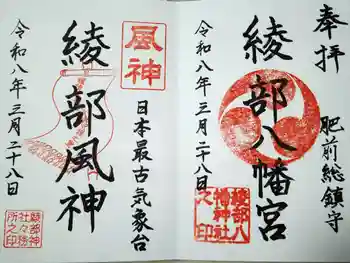 奉拝
肥前総鎮守
綾部八幡宮
綾部八幡神社之印
令和八年三月二十八日
風神
日本最古気象台
綾部風神
令和八年三月二十八日
綾部神社社務所之印